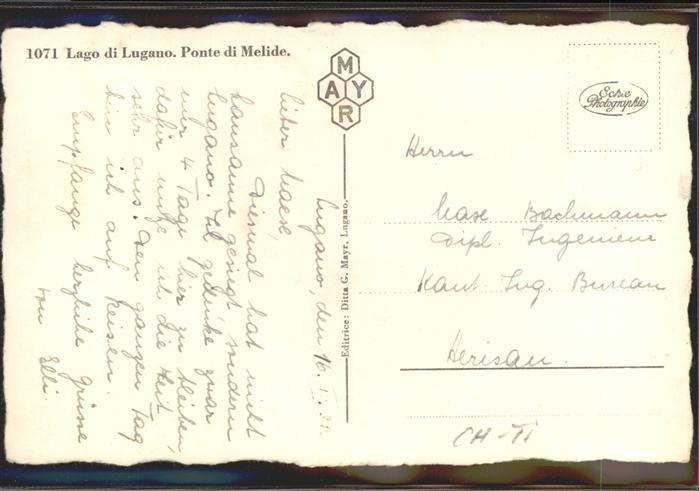 1071 Lago di Lugano. Ponte di Melide.
MAYR
Echte
Photographie
Editrice: Ditta G. Mayr, Lugano.
Lugano, den 16.
Lieber
Diesmal hat nicht
Lausanne gesiegt sondern
Lugano. Ich gedenke zwar
nur 4 Tage hier zu bleiben,
dafür nutze ich die Zeit
sehr aus. Den ganzen Tag
bin ich auf Reisen.
Empfange herzliche Grüsse
von Elli
Herrn
Bachmann
Dipl. Ingenieur
Kant. Ing. Bureau
Herisau.
CH-TI